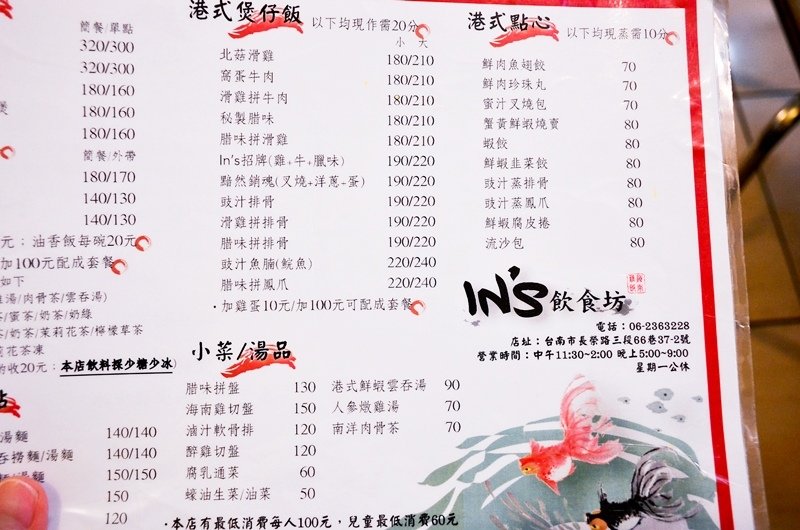 簡餐/單點
320/300
320/300
180/160
180/160
180/160
簡餐/外帶
180/170
140/130
140/130
元；油香飯每碗20元
加100元配成套餐
如下
湯/肉骨茶/雲吞湯)
/蜜茶/奶茶/奶綠
/奶茶/茉莉花茶/檸檬草茶
花茶凍
收20元；本店飲料採少糖少冰
點
湯麵 140/140
吞撈麵/湯麵 140/140
麵/湯麵 150/150
150
120
港式煲仔飯 以下均現作需20分
小 大
北菇滑雞 180/210
窩蛋牛肉 180/210
滑雞拼牛肉 180/210
秘製腊味 180/210
腊味拼滑雞 180/210
In's招牌(雞+牛+臘味) 190/220
黯然銷魂(叉燒+洋蔥+蛋) 190/220
豉汁排骨 190/220
滑雞拼排骨 190/220
腊味拼排骨 190/220
豉汁魚腩(鯇魚) 220/240
腊味拼鳳爪 220/240
·加雞蛋10元/加100元可配成套餐
小菜/湯品
腊味拼盤 130
海南雞切盤 150
滷汁軟骨排 120
醉雞切盤 120
腐乳通菜 60
蠔油生菜/油菜 50
港式鮮蝦雲吞湯 90
人參燉雞湯 70
南洋肉骨茶 70
·本店有最低消費每人100元，兒童最低消費60元
港式點心 以下均現蒸需10分
鮮肉魚翅餃 70
鮮肉珍珠丸 70
蜜汁叉燒包 70
蟹黃鮮蝦燒賣 80
蝦餃 80
鮮蝦韭菜餃 80
豉汁蒸排骨 80
豉汁蒸鳳爪 80
鮮蝦腐皮捲 80
流沙包 80
IN'S飲食坊
電話：06-2363228
店址：台南市長榮路三段66巷37-2號
營業時間：中午11:30~2:00 晚上5:00~9:00
星期一公休